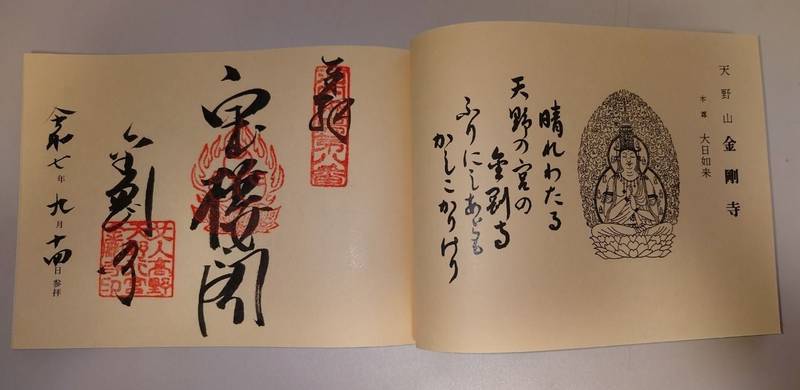 天野山 金剛寺
本尊 大日如来
晴れわたる
天野の宮の
金剛寺
ふりにしあとも
かしこかりけり
奉拝
第八番
宝楼閣
金剛寺
女人高野
令和七年九月十四日参拝